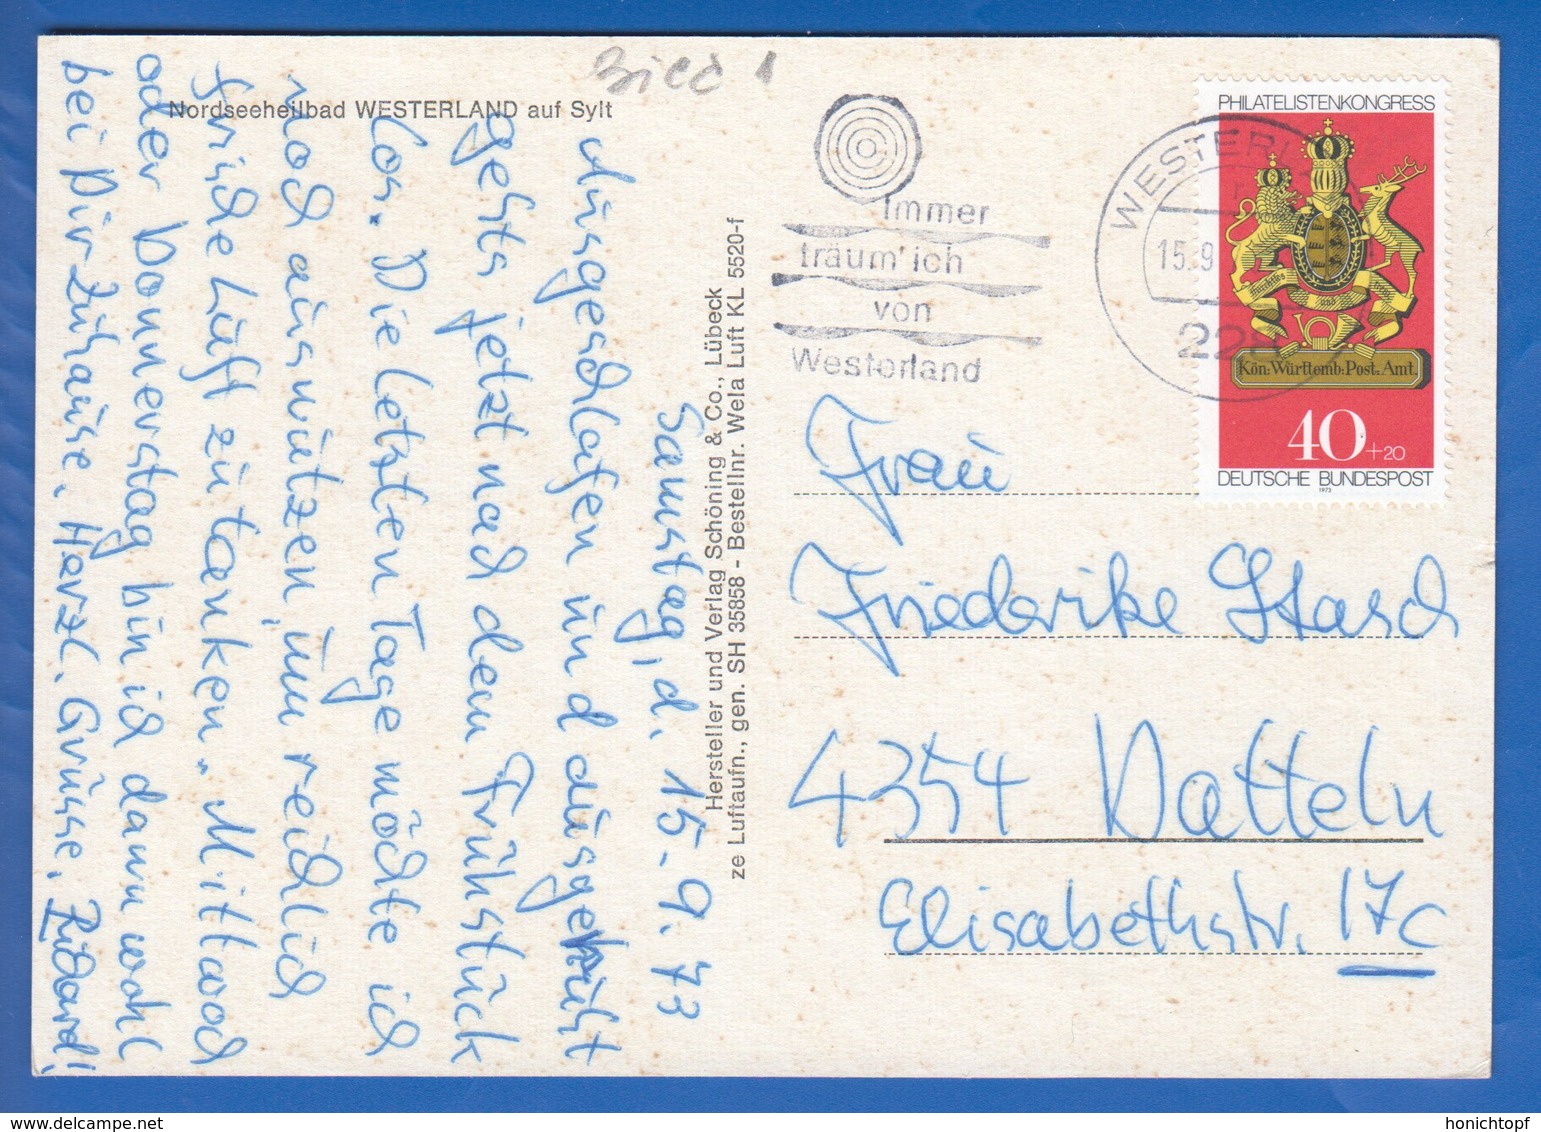 Bild 1
Nordseeheilbad WESTERLAND auf Sylt
Samstag, d. 15.9.73
Ausgeschlafen und ausgeruht
gehts jetzt nach dem Frühstück
los. Die letzten Tage möchte ich
noch ausnützen, um reichlich
frische Luft zu "tanken". Mittwoch
oder Donnerstag bin ich dann wohl
bei Dir zuhause. Herzl. Grüsse. Richard!
Hersteller und Verlag Schöning & Co., Lübeck
ze Luftaufn., gen. SH 35858 - Bestellnr. Wela Luft KL 5520-f
Immer
träum' ich
von
Westerland
WESTERL
15.9
228
PHILATELISTENKONGRESS
Kön. Württemb. Post. Amt.
40+20
DEUTSCHE BUNDESPOST
1973
Frau
Friederike Stasch
4354 Datteln
Elisabethstr. 17c
honichtopf